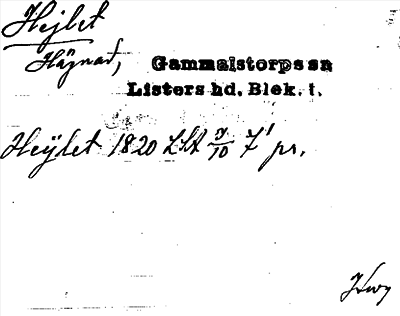 Hejlet
Hägnad,
Gammalstorps sn
Listers hd. Blek. l.
Heÿlet 1820 LSA 9/10 7' pr.